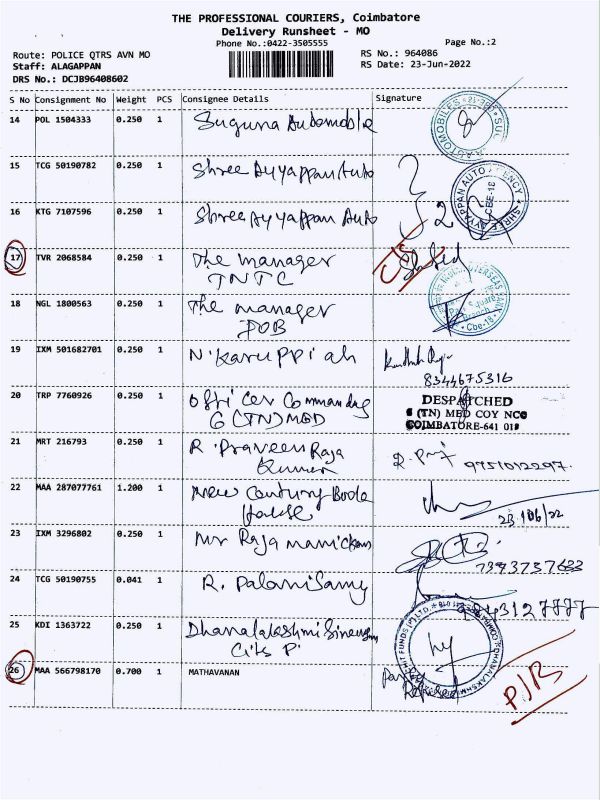 THE PROFESSIONAL COURIERS, Coimbatore
Delivery Runsheet - MO
Phone No.:0422-3505555
Page No.:2
Route: POLICE QTRS AVN MO
RS No.: 964086
Staff: ALAGAPPAN
RS Date: 23-Jun-2022
DRS No.: DCJB96408602
S No Consignment No Weight PCS Consignee Details Signature
14 POL 1504333 0.250 1 Suguna Automobile
15 TCG 50190782 0.250 1 Shree Ayyappan Auto
16 KTG 7107596 0.250 1 Shree Ayyappan Auto
17 TVR 2068584 0.250 1 The manager
TNTC
18 NGL 1800563 0.250 1 The manager
IOB
19 IXM 501682701 0.250 1 N. Karuppiah
8344675316
20 TRP 7760926 0.250 1 Officer Commandg
6 (TN) MED
DESPATCHED
6 (TN) MED COY NCC
COIMBATORE-641 018
21 MRT 216793 0.250 1 R. Praveen Raja
Kumar
22 MAA 287077761 1.200 1 New Century Book
House
23/06/22
23 IXM 3296802 0.250 1 Mr Raja manickam
24 TCG 50190755 0.041 1 R. Palanisamy
25 KDI 1363722 0.250 1 Dhanalakshmi Srinivasan
Cits P
26 MAA 566798170 0.700 1 MATHAVANAN